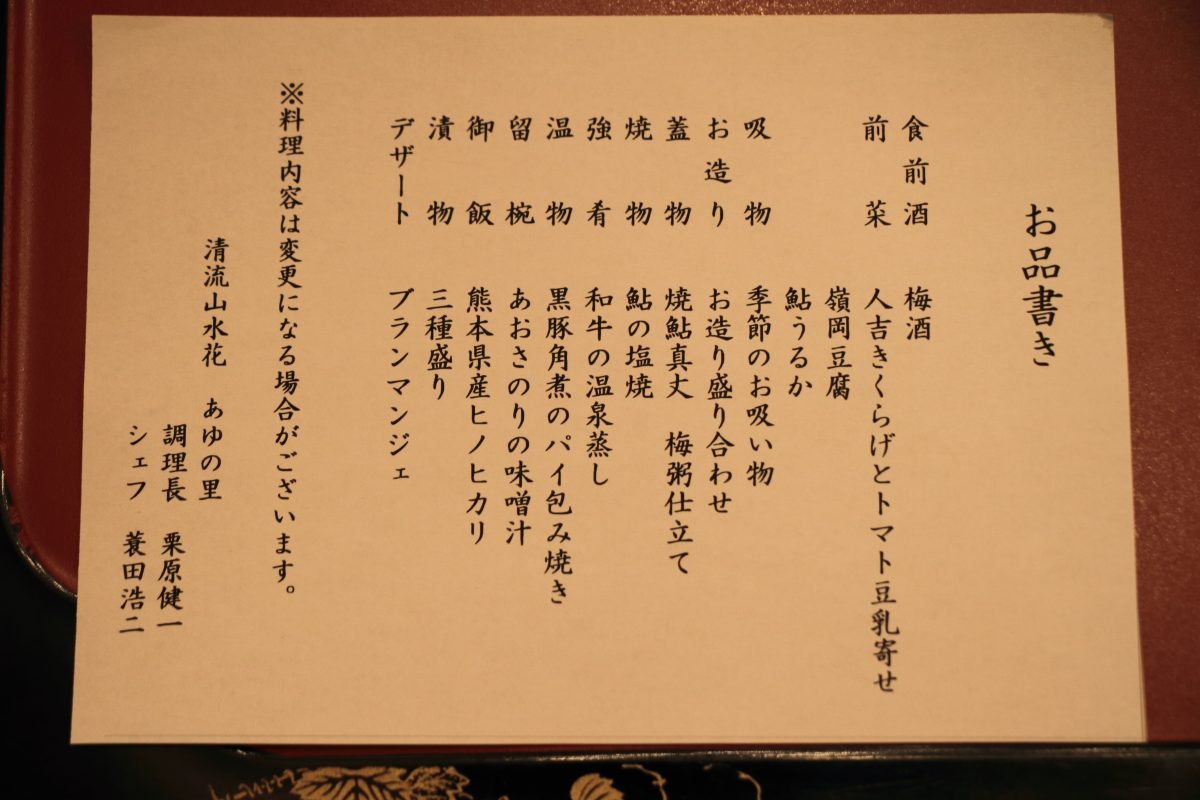 お品書き
食前酒 梅酒
前菜 人吉きくらげとトマト豆乳寄せ
嶺岡豆腐
鮎うるか
吸物 季節のお吸い物
お造り お造り盛り合わせ
蓋物 焼鮎真丈 梅粥仕立て
焼物 鮎の塩焼
強肴 和牛の温泉蒸し
温物 黒豚角煮のパイ包み焼き
留椀 あおさのりの味噌汁
御飯 熊本県産ヒノヒカリ
漬物 三種盛り
デザート ブランマンジェ
※料理内容は変更になる場合がございます。
清流山水花 あゆの里
調理長 栗原健一
シェフ 蓑田浩二